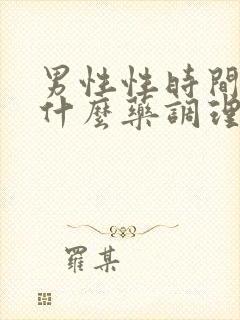 男性性時間
什麼藥調理
羅某